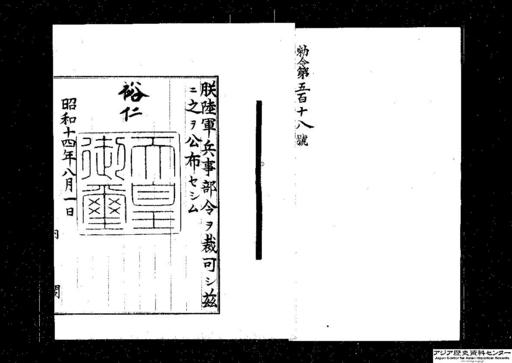 勅令第五百十八號
朕陸軍兵事部令ヲ裁可シ茲
ニ之ヲ公布セシム
裕仁
天皇
御璽
昭和十四年八月一日
内閣
アジア歴史資料センター
Japan Center for Asian Historical Records